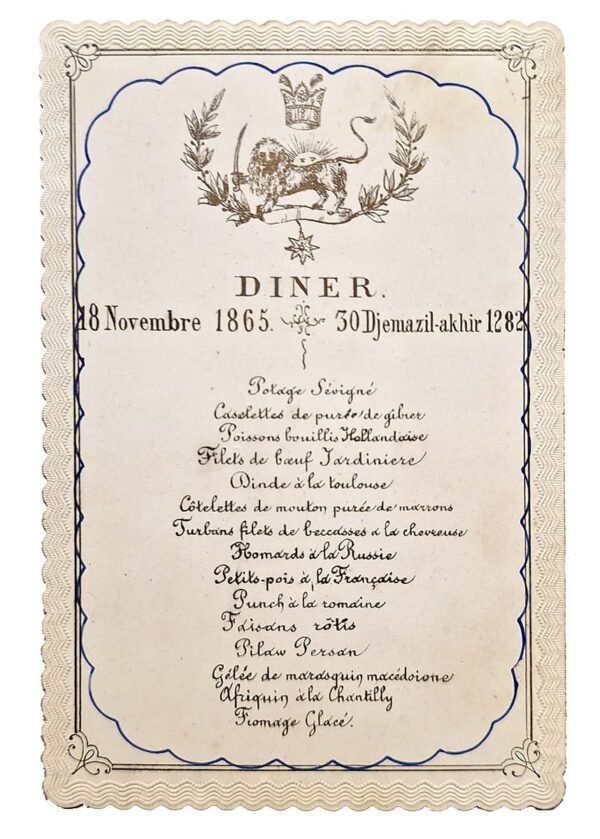 DINER.
18 Novembre 1865. 30 Djemazil-akhir 1282
Potage Sévigné
Caselettes de purée de gibier
Poissons bouillis Hollandaise
Filets de bœuf Jardiniere
Dinde à la toulouse
Côtelettes de mouton purée de marrons
Turbans filets de beccasses a la chevreuse
Homards à la Russie
Petits-pois à la Française
Punch à la romaine
Faisans rôtis
Pilaw Persan
Gélée de marasquin macédoione
Afriquin à la Chantilly
Fromage Glacé.